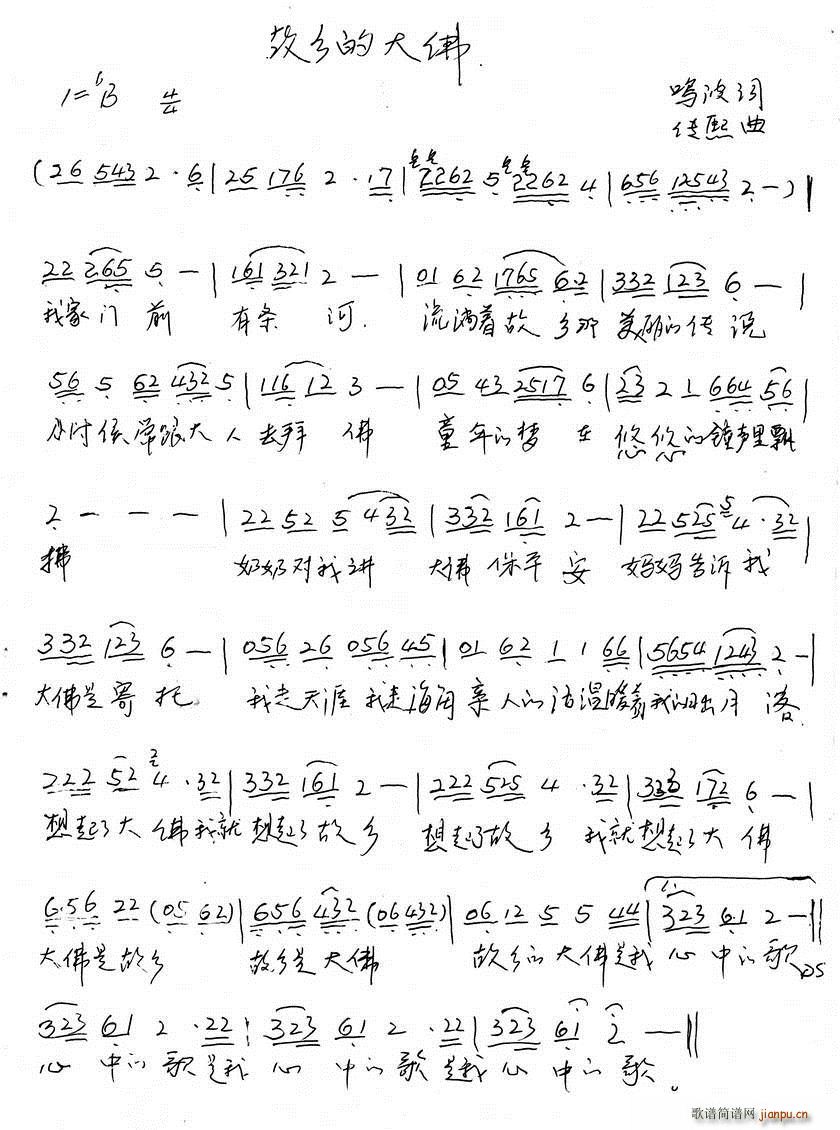 故乡的大佛
1=ᵇB 4/4
鸣波词
传熙曲
(26 543 2·6|25 176 2·17|2262 5 2262 4|656 12543 2—)‖
22 265 5—|161 321 2—|01 62 1765 62|332 123 6—|
我家门前 有条河. 流淌着故乡那美丽的传说
56 5 62 432 5|116 12 3—|05 43 2517 6|23 2 1 664 56|
小时候常跟大人去拜佛 童年的梦在悠悠的钟声里飘
2———|22 52 5 432|332 161 2—|22 525 4·32|
拂 奶奶对我讲 大佛保平安 妈妈告诉我
332 123 6—|056 26 056 45|01 62 1 1 66|5654 1243 2—|
大佛是寄托 我走天涯我走海角亲人的话温暖着我日出月落
222 52 4·32|332 161 2—|222 525 4·32|333 172 6—|
想起了大佛我就想起了故乡 想起了故乡 我就想起了大佛
6·56 22 (05 62)|656 432 (06432)|06 12 5 5 44|323 6·1 2—‖
大佛是故乡 故乡是大佛 故乡的大佛是我心中的歌 DS
323 61 2·22:323 61 2·22|323 61 2—‖
心中的歌是我心中的歌是我心中的歌。
歌谱简谱网 jianpu.cn